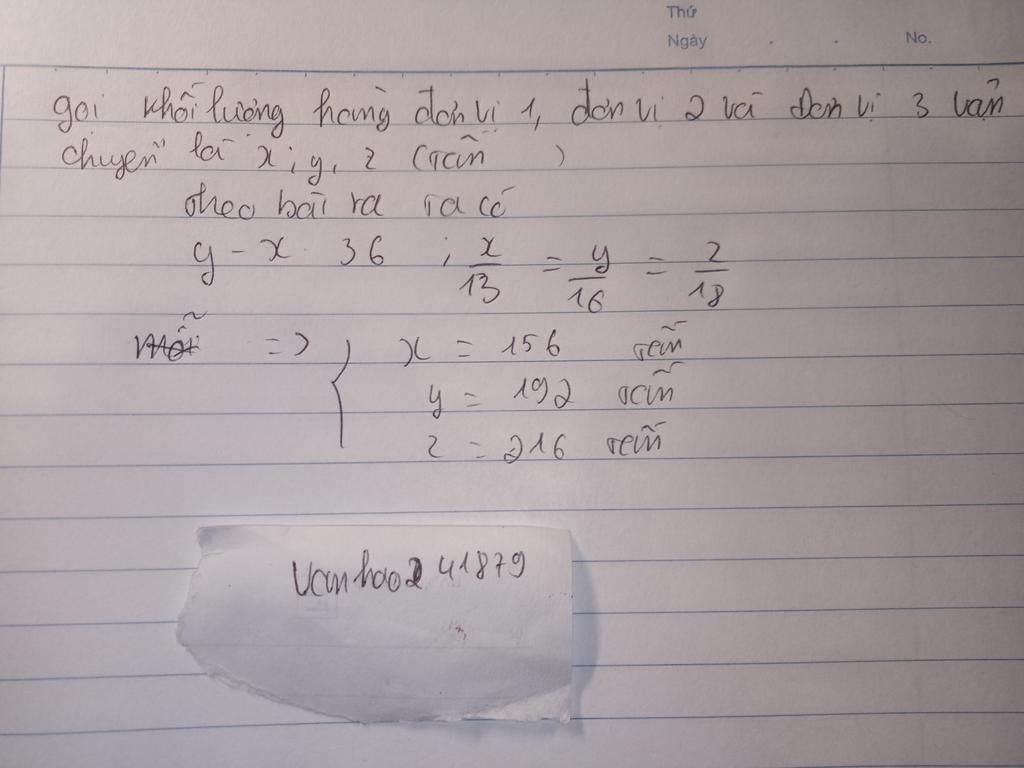 Thứ
Ngày . . No.
gọi khối lượng hàng đơn vị 1, đơn vị 2 và đơn vị 3 vận
chuyển là x; y, z (tấn )
theo bài ra ta có
y - x 36 ; x/13 = y/16 = z/18
=> { x = 156 tấn
y = 192 tấn
z = 216 tấn
Vanhao241879